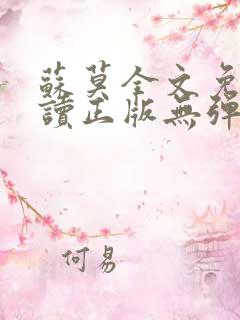 蘇莫全文免
讀正版無彈
何易